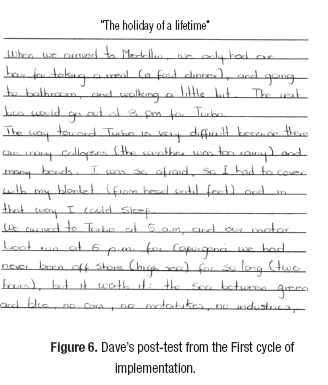 "The holiday of a lifetime"
When we arrived to Medellin, we only had one
hour for taking a meal (a fast dinner), and going
to bathroom, and walking a little bit. The next
bus would go out at 8 pm for Turbo.
The way toward Turbo is very difficult because there
are many collapses (the weather was too rainy) and
many bends. I was so afraid, so I had to cover
with my blanket (from head until feet) and in
that way I could sleep.
We arrived to Turbo at 5 a.m, and our motor
boat run at 6 p.m. for Capurganá we had
never been off shore (high sea) for so long (two
hours), but it worth it: the sea between green
and blue, no cars, no motorbikes, no industries,
Figure 6. Dave's post-test from the First cycle of
implementation.